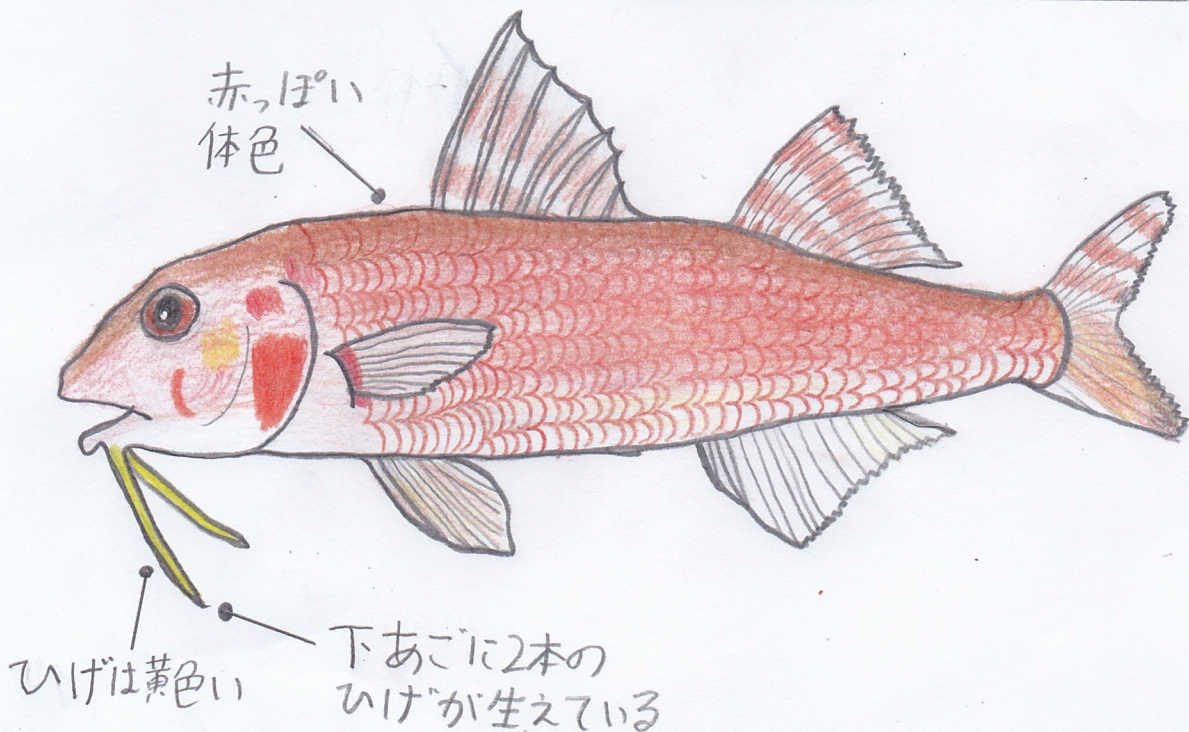 赤っぽい
体色
ひげは黄色い
下あごに2本の
ひげが生えている